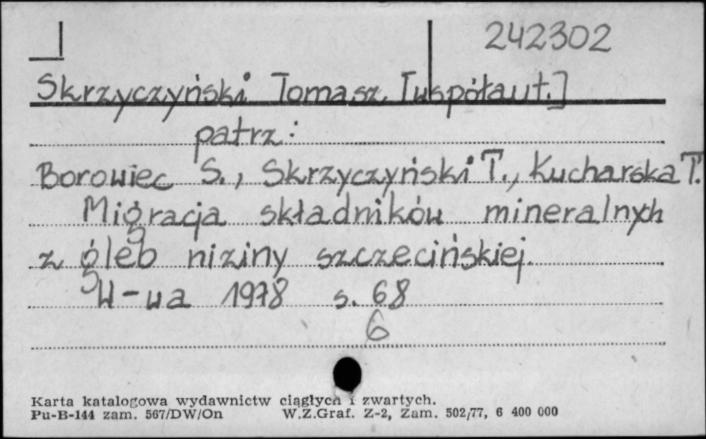 242302
Skrzyczyński Tomasz [współaut.]
patrz:
Borowiec S., Skrzyczyński T., Kucharska T.
Migracja składników mineralnych
z gleb niziny szczecińskiej.
W-wa 1978 s. 68
6
Karta katalogowa wydawnictw ciągłych i zwartych.
Pu-B-144 zam. 567/DW/On W.Z.Graf. Z-2, Zam. 502/77, 6 400 000